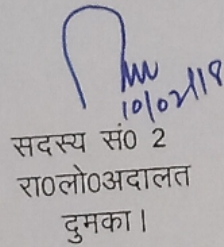 10/02/18
सदस्य सं0 2
रा0लो0अदालत
दुमका।